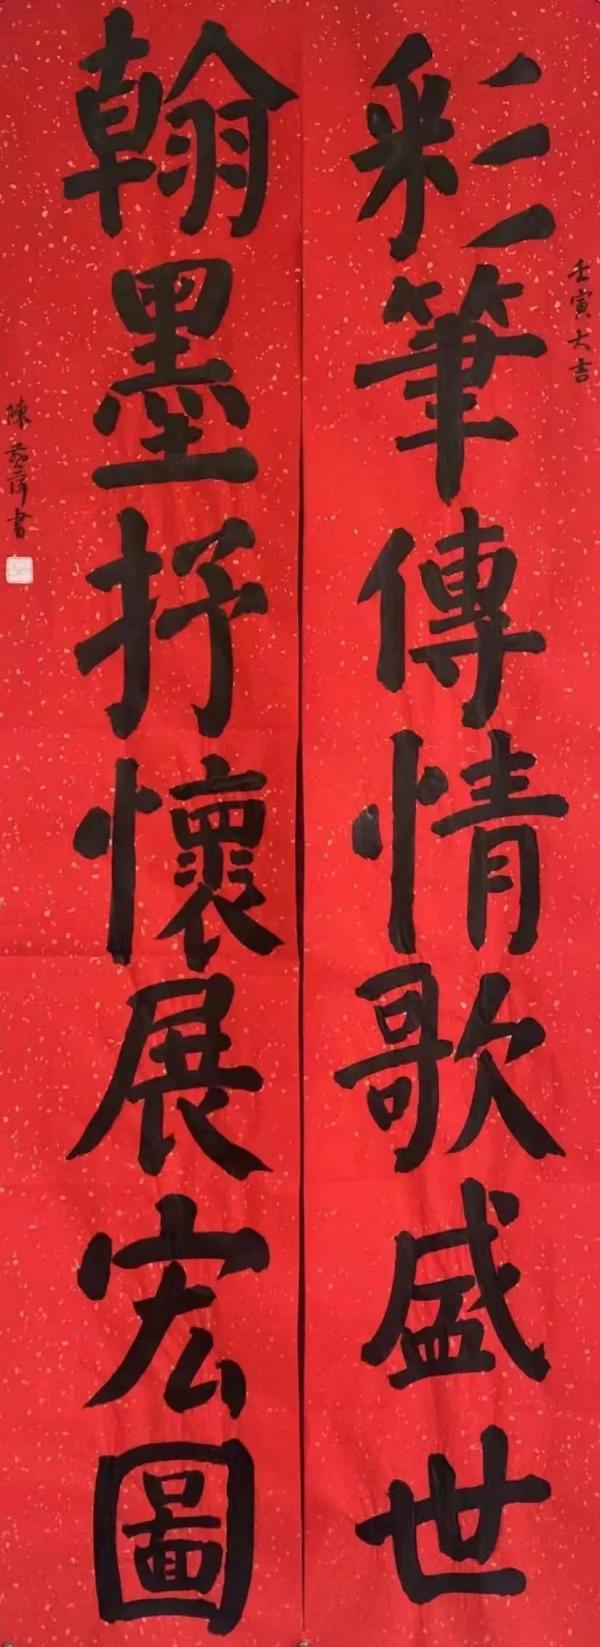 壬寅大吉
彩筆傳情歌盛世
翰墨抒懷展宏圖
陳
書